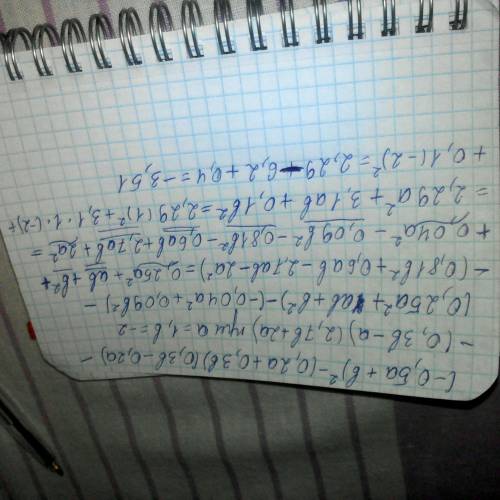 (-0,5a+b)²-(0,2a+0,3b)(0,3b-0,2a)-
-(0,3b-a)(2,7b+2a) при a=1, b=-2
(0,25a²+ab+b²)-(-0,04a²+0,09b²)-
-(0,81b²+0,6ab-2,7ab-2a²)=0,25a²+ab+b²+
+0,04a²-0,09b²-0,81b²-0,6ab+2,7ab+2a²=
=2,29a²+3,1ab+0,1b²=2,29(1)²+3,1·1·(-2)+
+0,1(-2)²=2,29-6,2+0,4=-3,51